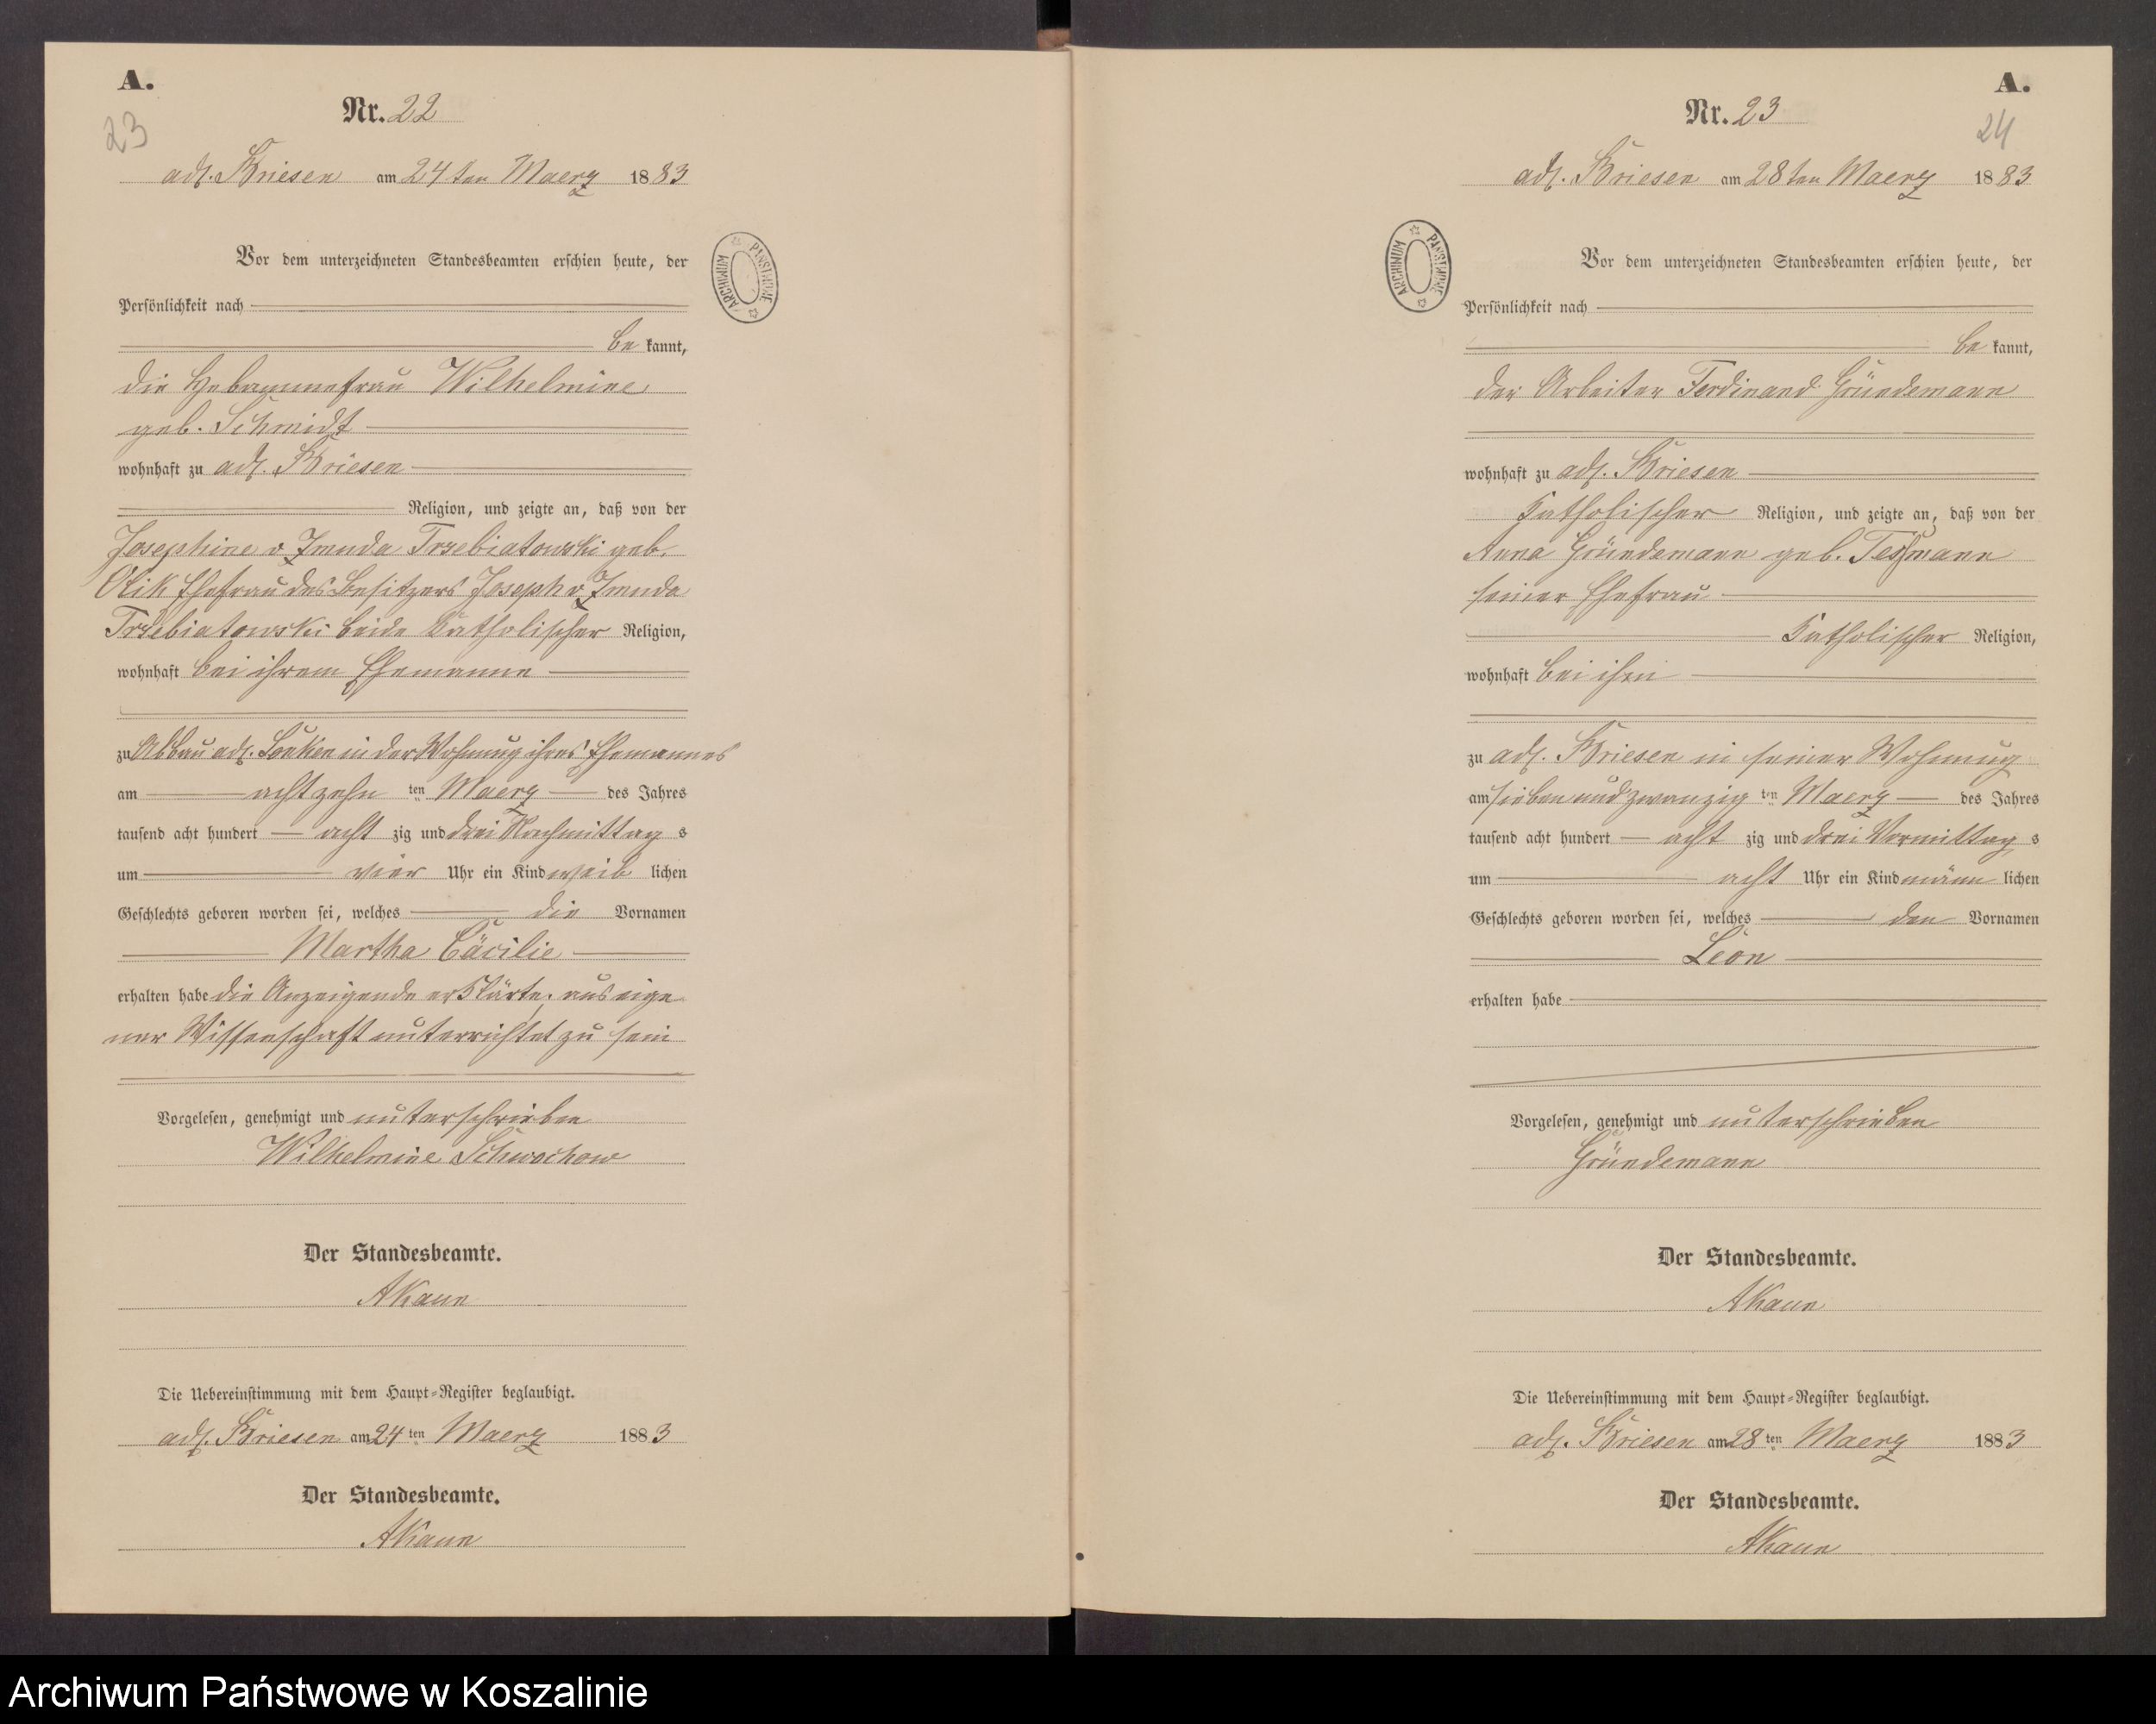 A.
23
Nr. 22
adl. Briesen am 24ten Maerz 1883
Vor dem unterzeichneten Standesbeamten erschien heute, der
Persönlichkeit nach
be kannt,
die Hebammefrau Wilhelmine
geb. Schmidt
wohnhaft zu adl. Briesen
Religion, und zeigte an, daß von der
Josephine v Zmuda Trzebiatowski geb.
Ehefrau des Besitzers Joseph v Zmuda
Trzebiatowski beide Katholischer Religion,
wohnhaft bei ihrem Ehemanne
zu Abbau adl. in der Wohnung ihres Ehemannes
am achtzehn ten Maerz des Jahres
tausend acht hundert acht zig und drei Nachmittag s
um vier Uhr ein Kind weib lichen
Geschlechts geboren worden sei, welches die Vornamen
Martha Cäcilie
erhalten habe die Anzeigende erklärte, aus eige
ner Wissenschaft unterrichtet zu sein
Vorgelesen, genehmigt und unterschrieben
Wilhelmine Schwochow
Der Standesbeamte.
AKaun
Die Uebereinstimmung mit dem Haupt-Register beglaubigt.
adl. Briesen am 24 ten Maerz 1883
Der Standesbeamte.
AKaun
A.
24
Nr. 23
adl. Briesen am 28ten Maerz 1883
ARCHIWUM PAŃSTWOWE
Vor dem unterzeichneten Standesbeamten erschien heute, der
Persönlichkeit nach
be kannt,
der Arbeiter Ferdinand Gründemann
wohnhaft zu adl. Briesen
Katholischer Religion, und zeigte an, daß von der
Anna Gründemann geb. Teßmann
seiner Ehefrau
Katholischer Religion,
wohnhaft bei ihm
zu adl. Briesen in seiner Wohnung
am sieben und zwanzig ten Maerz des Jahres
tausend acht hundert acht zig und drei Vormittag s
um acht Uhr ein Kind männ lichen
Geschlechts geboren worden sei, welches den Vornamen
Leon
erhalten habe
Vorgelesen, genehmigt und unterschrieben
Gründemann
Der Standesbeamte.
AKaun
Die Uebereinstimmung mit dem Haupt-Register beglaubigt.
adl. Briesen am 28 ten Maerz 1883
Der Standesbeamte.
AKaun
Archiwum Państwowe w Koszalinie